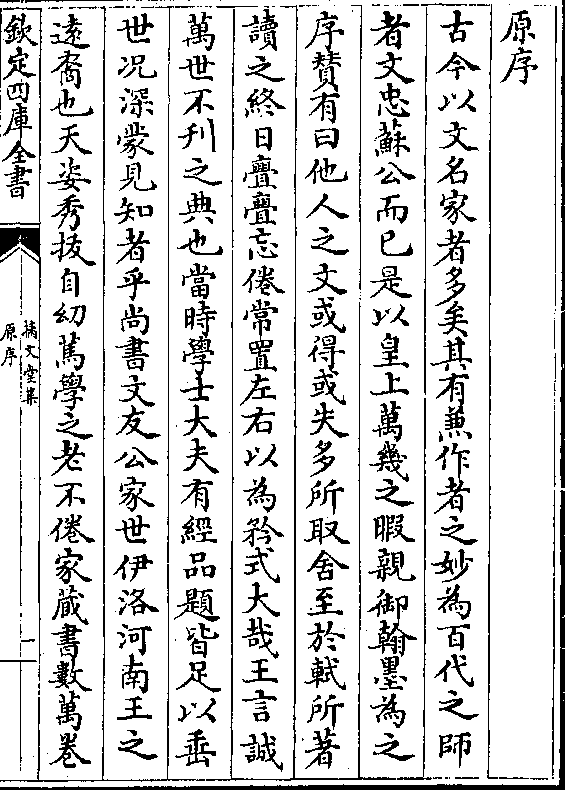 原序
古今以文名家者多矣其有兼作者之妙為百代之師
者文忠蘇公而已是以皇上萬幾之暇親御翰墨為之
序賛有曰他人之文或得或失多所取舍至於軾所著
讀之終日亹亹忘倦常置左右以為矜式大哉王言誠
萬世不刋之典也當時學士大夫有經品題皆足以垂
世况深蒙見知者乎尚書文友公家世伊洛河南王之
遠裔也天姿秀抜自幼篤學之老不倦家藏書數萬卷
欽定四庫全書
摛文堂集
原序
一